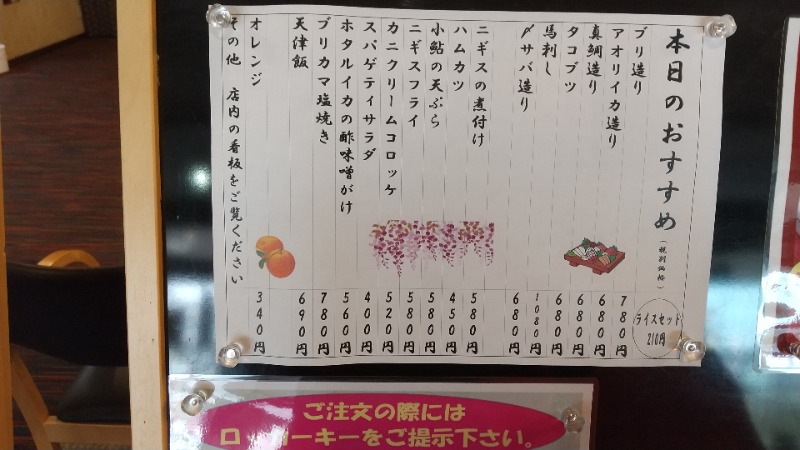 本日のおすすめ（税別価格）
ライスセット
210円
ブリ造り 780円
アオリイカ造り 680円
真鯛造り 680円
タコブツ 680円
馬刺し 1080円
〆サバ造り 680円
ニギスの煮付け 580円
ハムカツ 450円
小鮎の天ぷら 580円
ニギスフライ 580円
カニクリームコロッケ 520円
スパゲティサラダ 400円
ホタルイカの酢味噌がけ 560円
ブリカマ塩焼き 780円
天津飯 690円
オレンジ 340円
その他 店内の看板をご覧ください
ご注文の際には
ロッカーキーをご提示下さい。